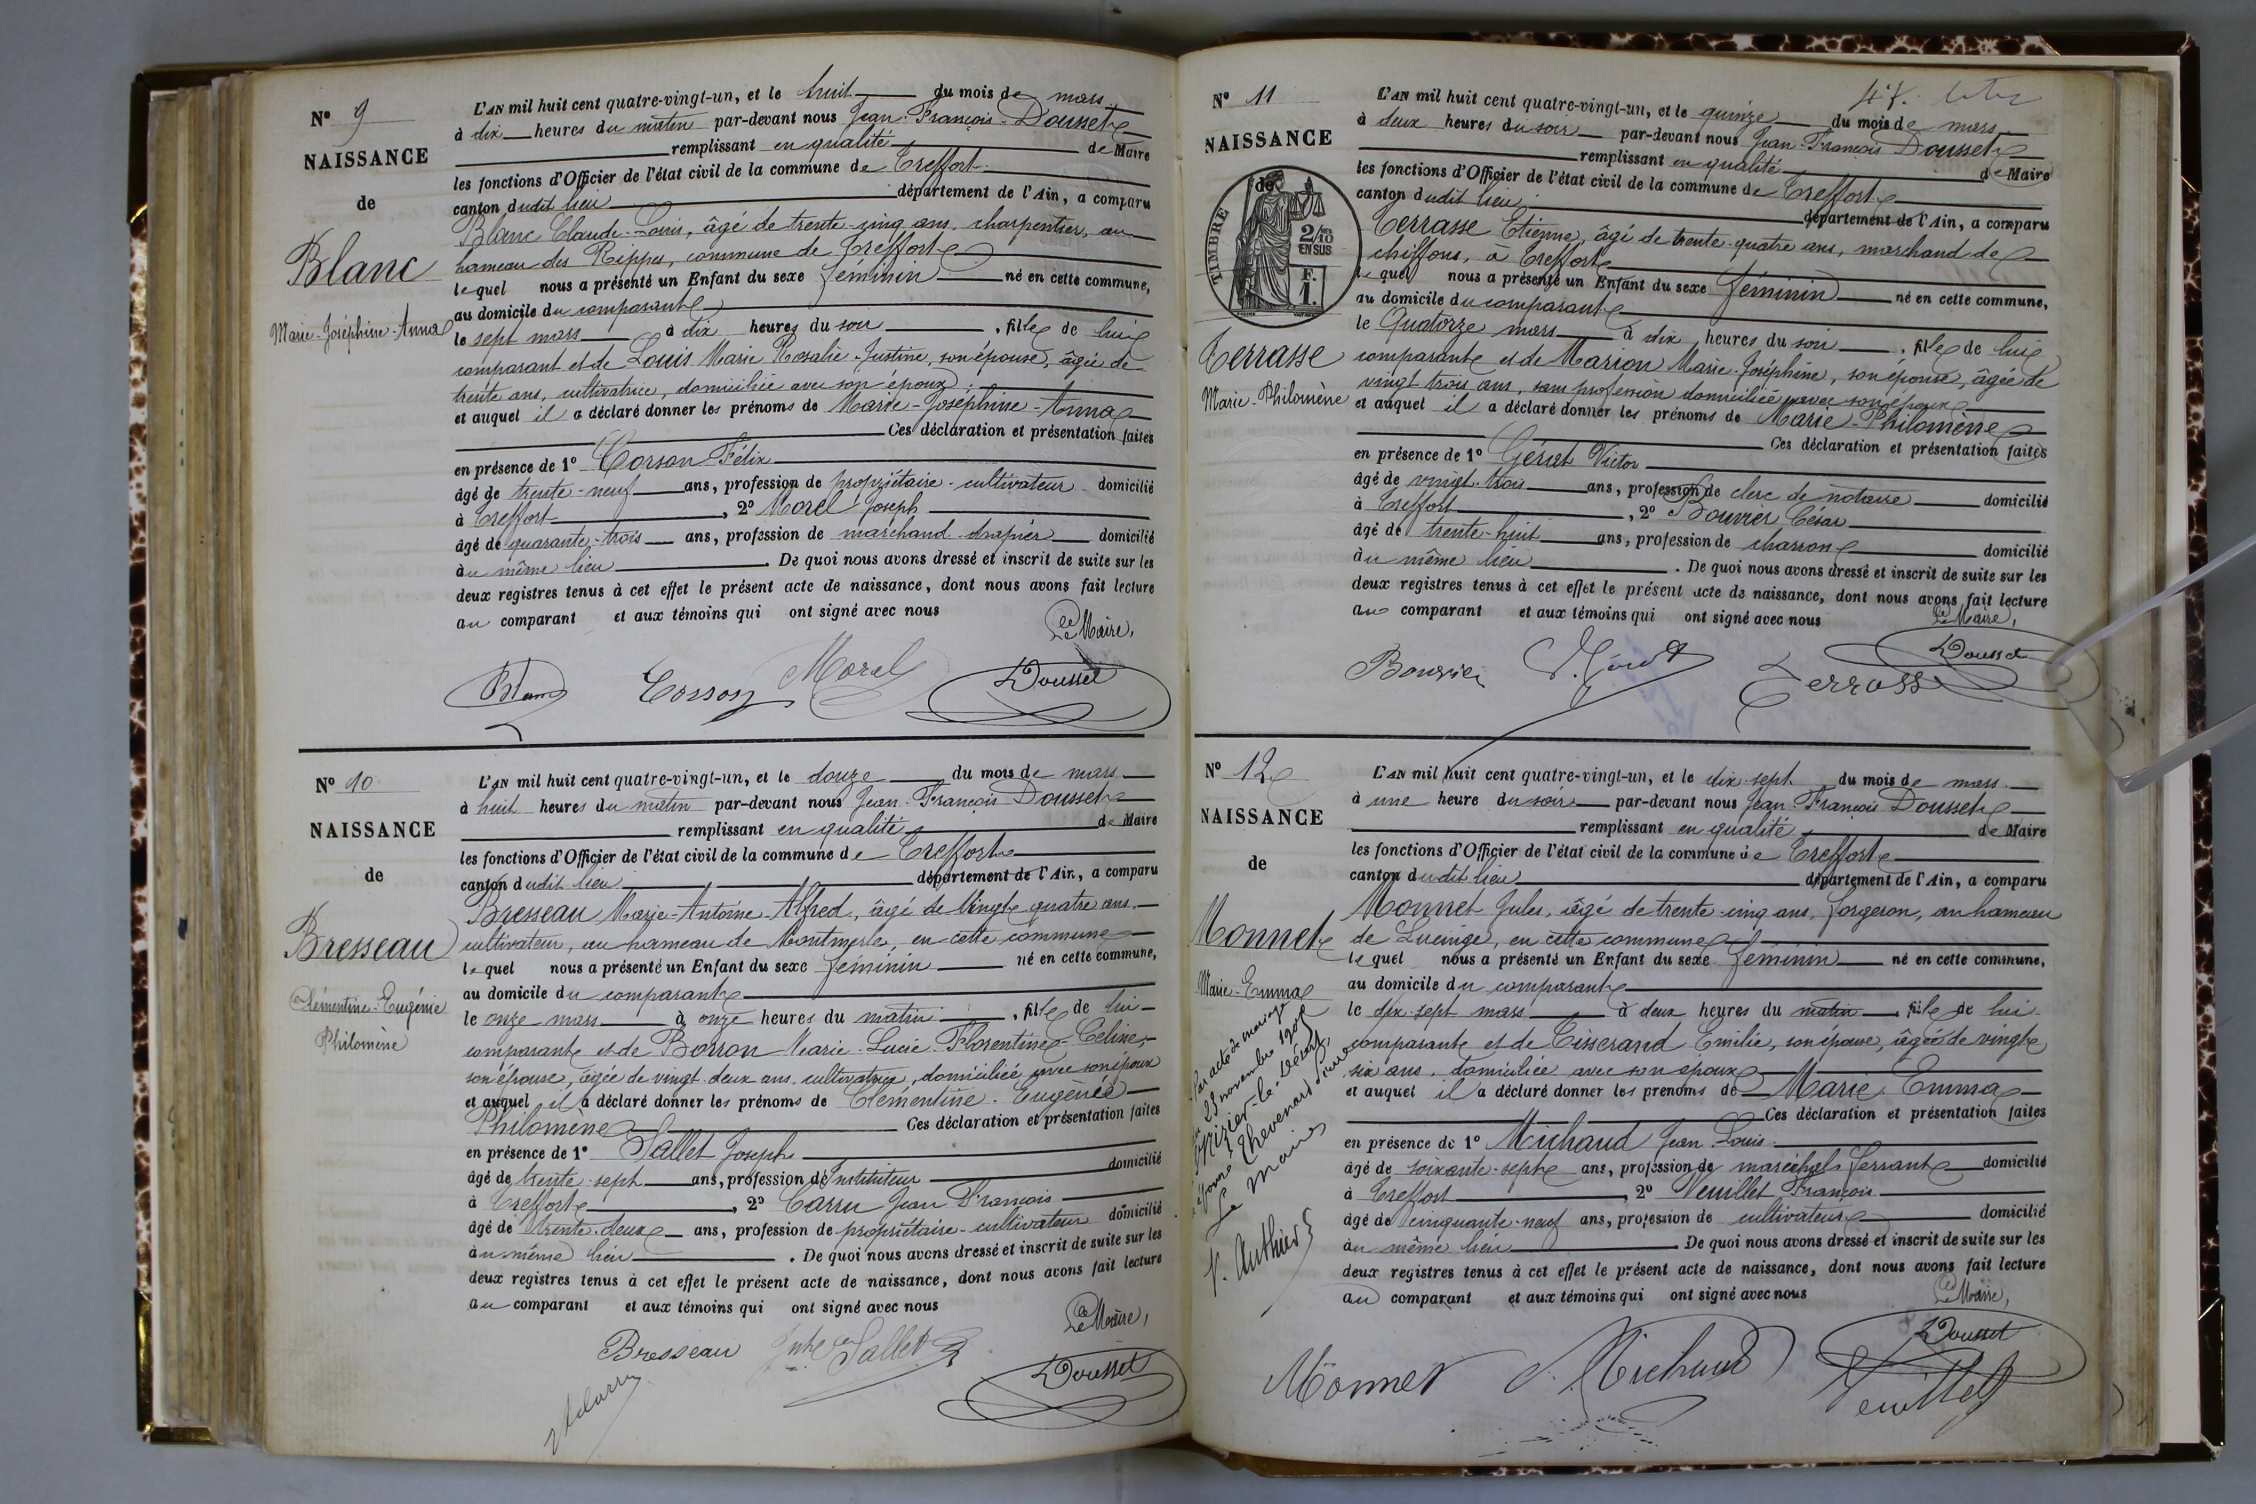 N° 9
NAISSANCE
de
Blanc
Marie-Joséphine-Anna
L'AN mil huit cent quatre-vingt-un, et le huit du mois de mars
à dix heures du matin par-devant nous Jean-François Dousset
remplissant en qualité de Maire
les fonctions d'Officier de l'état civil de la commune de Treffort
canton dudit lieu département de l'Ain, a comparu
Blanc Claude-Louis, âgé de trente-cinq ans, charpentier, au
hameau des Rippes, commune de Treffort
lequel nous a présenté un Enfant du sexe féminin né en cette commune,
au domicile du comparant
le sept mars à dix heures du soir, fille de lui
comparant et de Louis Marie Rosalie-Justine, son épouse, âgée de
trente ans, cultivatrice, domiciliée avec son époux
et auquel il a déclaré donner les prénoms de Marie-Joséphine-Anna
Ces déclaration et présentation faites
en présence de 1° Corson Félix
âgé de trente-neuf ans, profession de propriétaire-cultivateur domicilié
à Treffort, 2° Morel Joseph
âgé de quarante-trois ans, profession de marchand drapier domicilié
au même lieu. De quoi nous avons dressé et inscrit de suite sur les
deux registres tenus à cet effet le présent acte de naissance, dont nous avons fait lecture
au comparant et aux témoins qui ont signé avec nous
Le Maire,
Blanc Corson Morel Dousset
N° 10
NAISSANCE
de
Bresseau
Clémentine-Eugénie
Philomène
L'AN mil huit cent quatre-vingt-un, et le douze du mois de mars
à huit heures du matin par-devant nous Jean-François Dousset
remplissant en qualité de Maire
les fonctions d'Officier de l'état civil de la commune de Treffort
canton dudit lieu département de l'Ain, a comparu
Bresseau Marie-Antoine-Alfred, âgé de vingt quatre ans
cultivateur, au hameau de Montmerle, en cette commune
lequel nous a présenté un Enfant du sexe féminin né en cette commune,
au domicile du comparant
le onze mars à onze heures du matin, fille de lui
comparant et de Borron Marie-Lucie-Florentine-Céline,
son épouse, âgée de vingt-deux ans, cultivatrice, domiciliée avec son époux
et auquel il a déclaré donner les prénoms de Clémentine-Eugénie
Philomène Ces déclaration et présentation faites
en présence de 1° Sallet Joseph
âgé de trente-sept ans, profession de Instituteur domicilié
à Treffort, 2° Carru Jean François
âgé de trente-deux ans, profession de propriétaire-cultivateur domicilié
au même lieu. De quoi nous avons dressé et inscrit de suite sur les
deux registres tenus à cet effet le présent acte de naissance, dont nous avons fait lecture
au comparant et aux témoins qui ont signé avec nous
Le Maire,
Bresseau Sallet Dousset
N° 11
NAISSANCE
de
TIMBRE
2/10 EN SUS
F. 1.
Terrasse
Marie-Philomène
L'AN mil huit cent quatre-vingt-un, et le quinze du mois de mars
à deux heures du soir par-devant nous Jean-François Dousset
remplissant en qualité de Maire
les fonctions d'Officier de l'état civil de la commune de Treffort
canton dudit lieu département de l'Ain, a comparu
Terrasse Etienne, âgé de trente-quatre ans, marchand de
chiffons, à Treffort
lequel nous a présenté un Enfant du sexe féminin né en cette commune,
au domicile du comparant
le Quatorze mars à dix heures du soir, fille de lui
comparant et de Marion Marie-Joséphine, son épouse, âgée de
vingt trois ans, sans profession domiciliée avec son époux
et auquel il a déclaré donner les prénoms de Marie-Philomène
Ces déclaration et présentation faites
en présence de 1° Victor
âgé de vingt-trois ans, profession de clerc de notaire domicilié
à Treffort, 2° Bouvier César
âgé de trente-huit ans, profession de charron domicilié
au même lieu. De quoi nous avons dressé et inscrit de suite sur les
deux registres tenus à cet effet le présent acte de naissance, dont nous avons fait lecture
au comparant et aux témoins qui ont signé avec nous
Le Maire,
Bouvier Terrasse Dousset
N° 12
NAISSANCE
de
Monnet
Marie-Emma
Par acte de mariage
du 23 novembre 1905
à St Nizier-le-Désert,
épouse Thevenard
Le Maire
L'AN mil huit cent quatre-vingt-un, et le dix-sept du mois de mars
à une heure du soir par-devant nous Jean-François Dousset
remplissant en qualité de Maire
les fonctions d'Officier de l'état civil de la commune de Treffort
canton dudit lieu département de l'Ain, a comparu
Monnet Jules, âgé de trente-cinq ans, forgeron, au hameau
de Lucinge, en cette commune
lequel nous a présenté un Enfant du sexe féminin né en cette commune,
au domicile du comparant
le dix-sept mars à deux heures du matin, fille de lui
comparant et de Tisserand Emilie, son épouse, âgée de vingt
six ans, domiciliée avec son époux
et auquel il a déclaré donner les prénoms de Marie Emma
Ces déclaration et présentation faites
en présence de 1° Michaud Jean-Louis
âgé de soixante-sept ans, profession de maréchal-ferrant domicilié
à Treffort, 2° Veuillet François
âgé de cinquante-neuf ans, profession de cultivateur domicilié
au même lieu. De quoi nous avons dressé et inscrit de suite sur les
deux registres tenus à cet effet le présent acte de naissance, dont nous avons fait lecture
au comparant et aux témoins qui ont signé avec nous
Le Maire,
Monnet Michaud Dousset
Veuillet